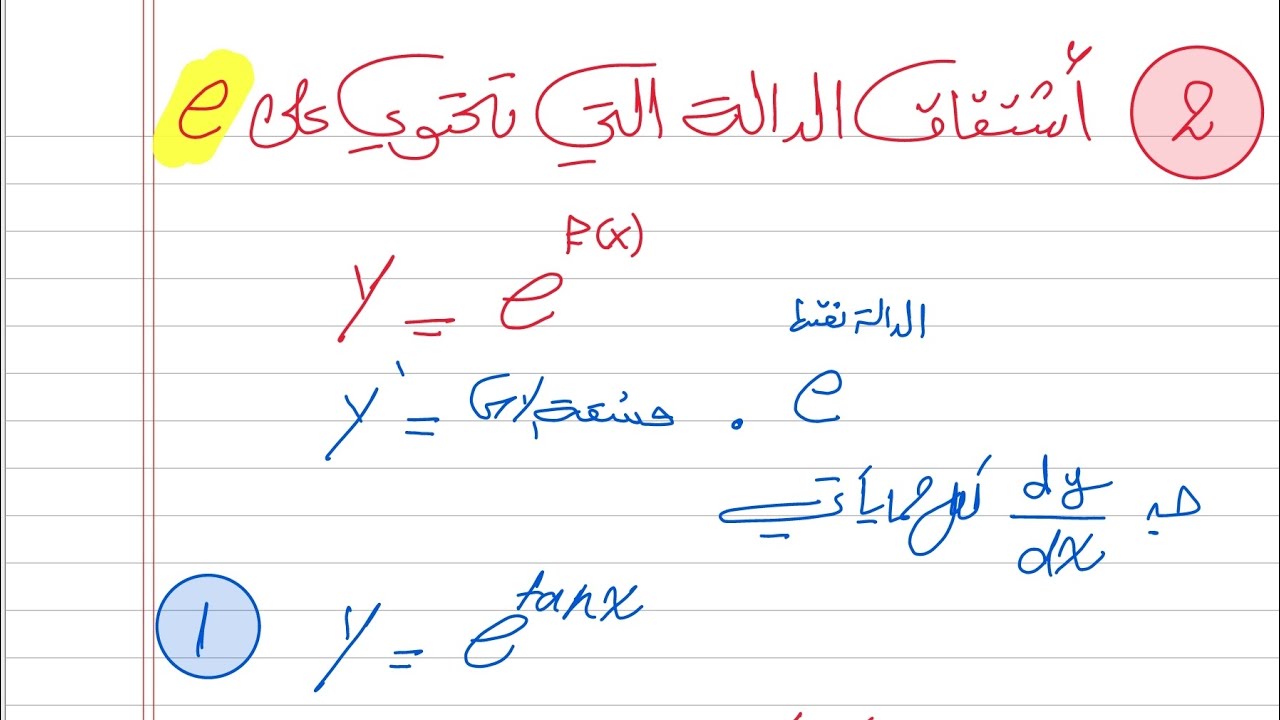 2 أشتقاق الدالة التي تحتوي على e
y = e^{F(x)}
الدالة نفسها
y' = مشتقة الاس . e
جد dy/dx لكل مما يأتي
1 y = e^{tanx}